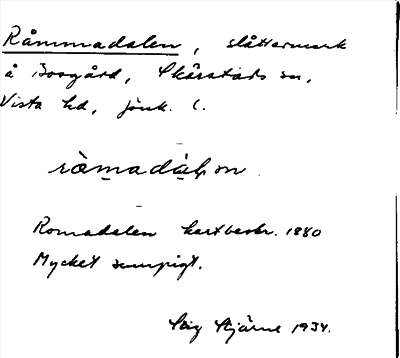 Råmmadalen, slåttermark
å Boogård, Skärstads sn,
Vista hd, Jönk. l.
Romadalen kartbeskr. 1880
Mycket sumpigt.
Stig Stjärne 1934.